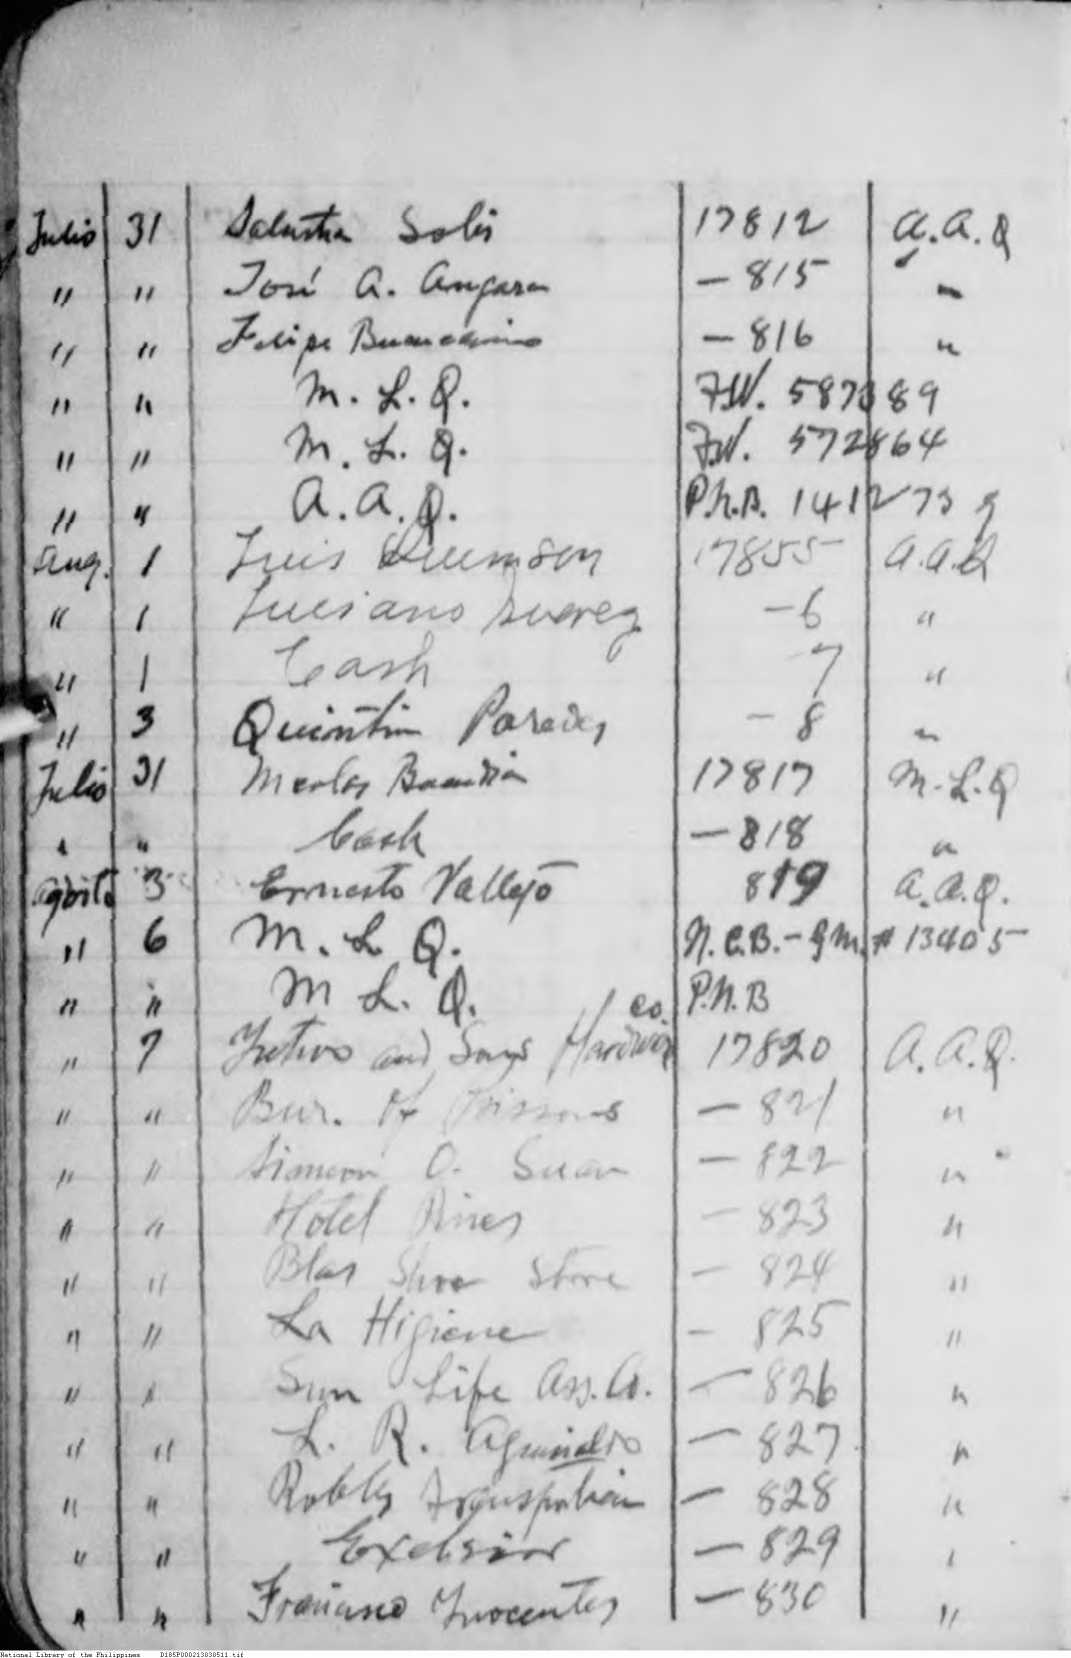 Julio 31 Salustia Solis 17812 A.A.Q
" " José A. Angara - 815 "
" " Felipe Buencamino - 816 "
" " M.L.Q. F.W. 587389
" " M.L.Q. F.W. 572864
" " A.A.Q. P.N.B. 141273 g
Aug. 1 Luis 17855 A.A.Q
" 1 Luciano Suarez - 6 "
" 1 Cash 7 "
" 3 Quintin Paredes - 8 "
Julio 31 17817 M.L.Q
" " Cash - 818 "
Agosto 3 Ernesto Vallejo 819 A.A.Q.
" 6 M.L.Q. N.C.B. - G.M. # 13405
" " M L. Q. P.N.B
" 7 Yutivo and Sons Hardware Co. 17820 A.A.Q.
" " Bur. of Prisons - 821 "
" " Simeon O. Suan - 822 "
" " Hotel Pines - 823 "
" " Blas Shoe Store - 824 "
" " La Higiene - 825 "
" " Sun Life Ass. Co. - 826 "
" " L. R. Aguinaldo - 827 "
" " Robles Transportation - 828 "
" " Excelsior - 829 "
" " Francisco Inocentes - 830 "
National Library of the Philippines D185P000213030511.tif